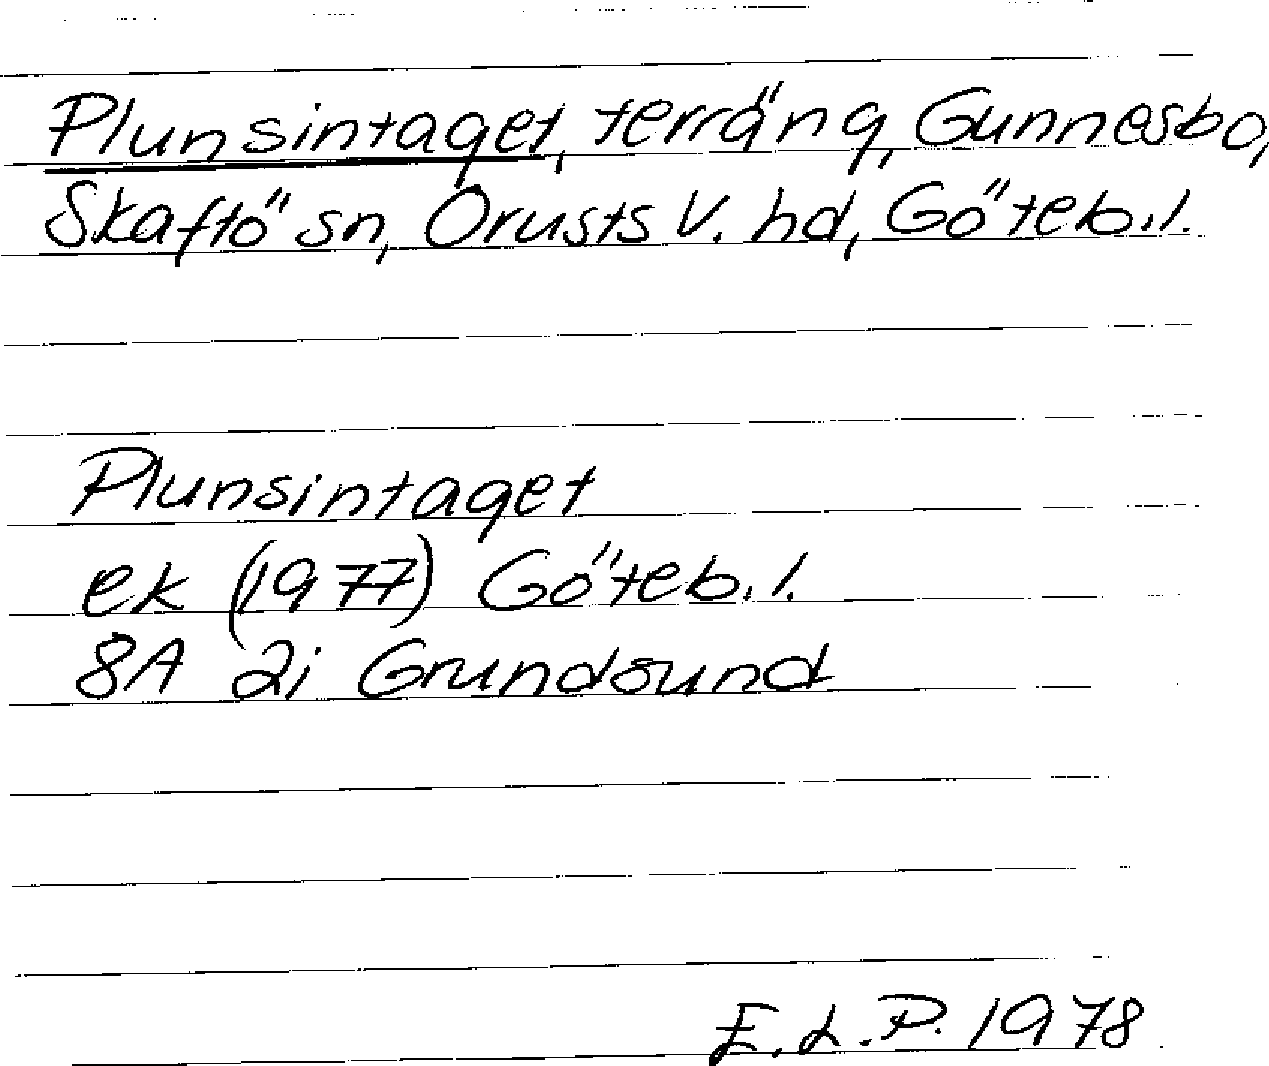 Plunsintaget, terräng, Gunnesbo,
Skaftö sn, Orusts V. hd, Göteb.l.
Plunsintaget
ek (1977) Göteb.l.
8A 2i Grundsund
E.L.P. 1978